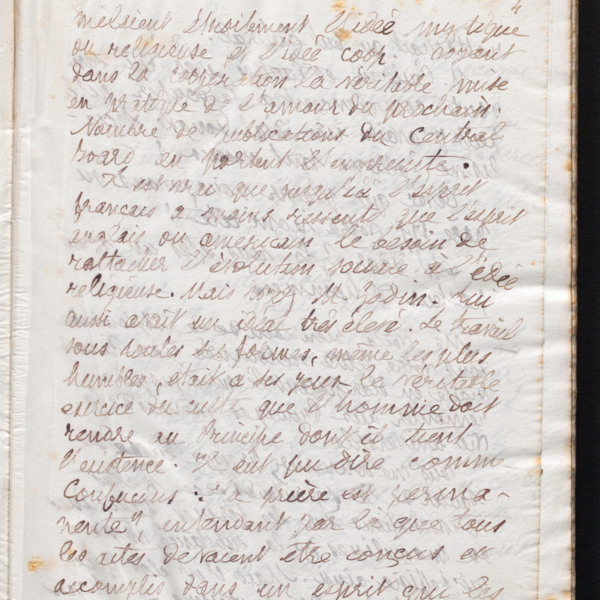 mêlaient étroitement l'idée mystique
ou religieuse à l'idée coop. voyant
dans la coopération la véritable mise
en pratique de l'amour du prochain.
Nombre de publications du Central
Board en portent l'empreinte.
Il est vrai que jusqu'ici l'esprit
français a moins ressenti que l'esprit
anglais ou américain le besoin de
rattacher l'évolution sociale à l'idée
religieuse. Mais voyez M. Godin. Lui
aussi avait un idéal très élevé. Le travail
sous toutes ses formes, même les plus
humbles, était à ses yeux le véritable
exercice du culte que l'homme doit
rendre au Principe dont il tient
l'existence. Il eut pu dire comme
Confucius : "Ma prière est perma-
nente", entendant par là que tous
les actes devaient être conçus et
accomplis dans un esprit qui les